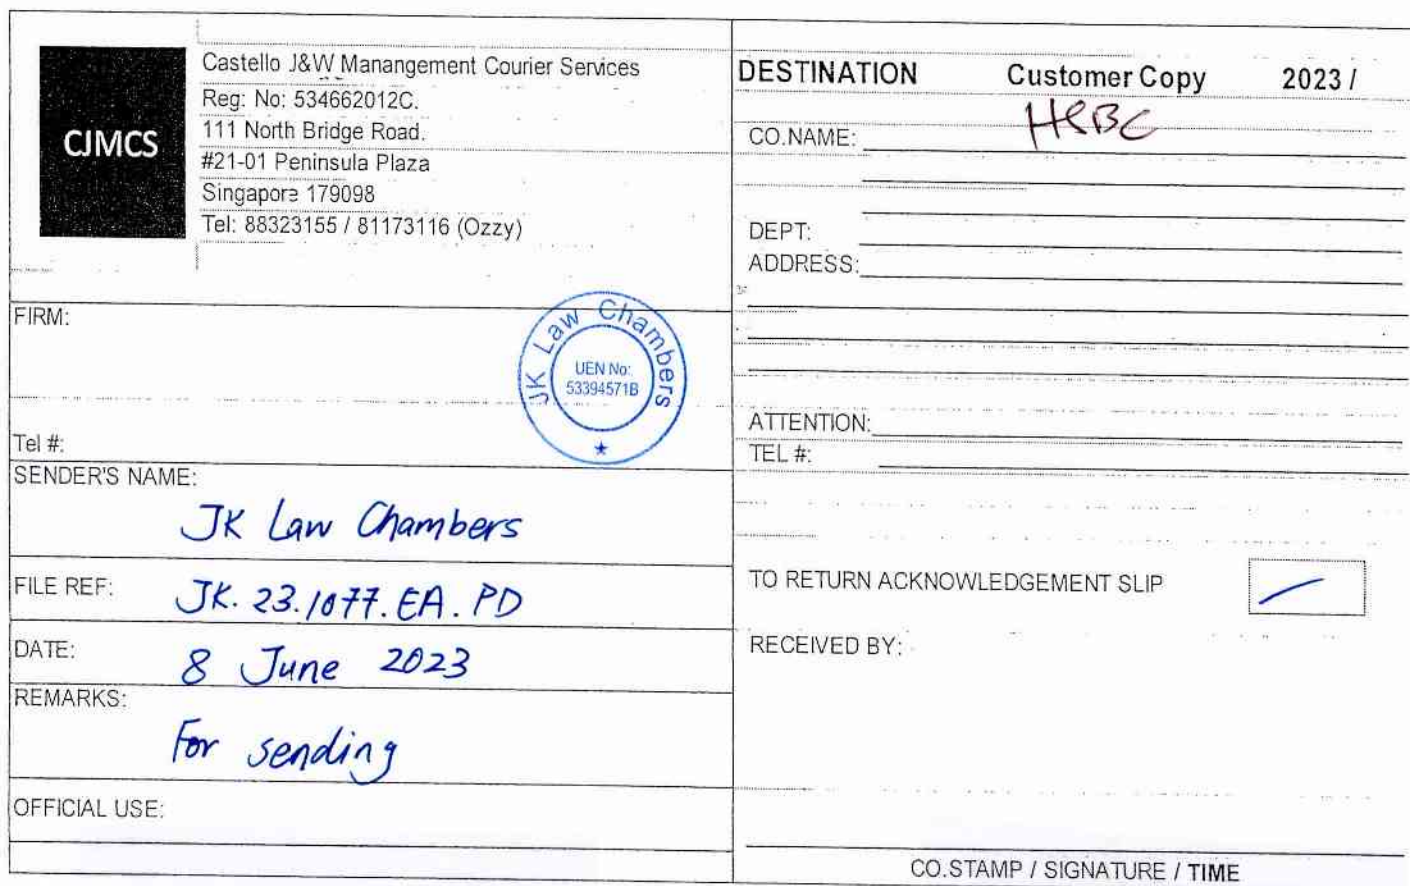 CJMCS
Castello J&W Manangement Courier Services
Reg: No: 534662012C.
111 North Bridge Road.
#21-01 Peninsula Plaza
Singapore 179098
Tel: 88323155 / 81173116 (Ozzy)
FIRM:
JK Law Chambers
UEN No:
53394571B
Tel #:
SENDER'S NAME:
JK Law Chambers
FILE REF: JK.23.1077.EA.PD
DATE: 8 June 2023
REMARKS:
For sending
OFFICIAL USE:
DESTINATION Customer Copy 2023 /
CO.NAME: HSBC
DEPT:
ADDRESS:
ATTENTION:
TEL #:
TO RETURN ACKNOWLEDGEMENT SLIP
RECEIVED BY:
CO.STAMP / SIGNATURE / TIME